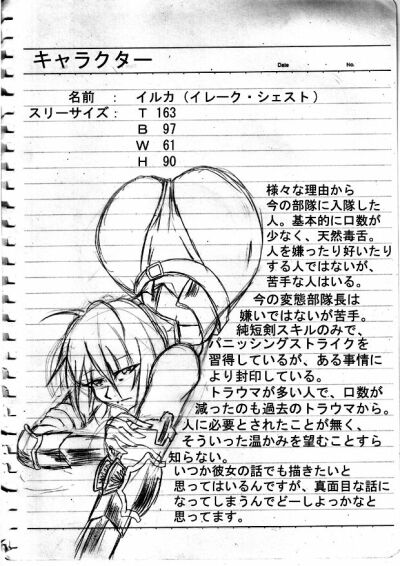 キャラクター
Date ・ ・ No.
名前 ： イルカ（イレーク・シェスト）
スリーサイズ： T 163
B 97
W 61
H 90
様々な理由から
今の部隊に入隊した
人。基本的に口数が
少なく、天然毒舌。
人を嫌ったり好いたり
する人ではないが、
苦手な人はいる。
今の変態部隊長は
嫌いではないが苦手。
純短剣スキルのみで、
バニッシングストライクを
習得しているが、ある事情に
より封印している。
トラウマが多い人で、口数が
減ったのも過去のトラウマから。
人に必要とされたことが無く、
そういった温かみを望むことすら
知らない。
いつか彼女の話でも描きたいと
思ってはいるんですが、真面目な話に
なってしまうんでどーしよっかなと
思ってます。